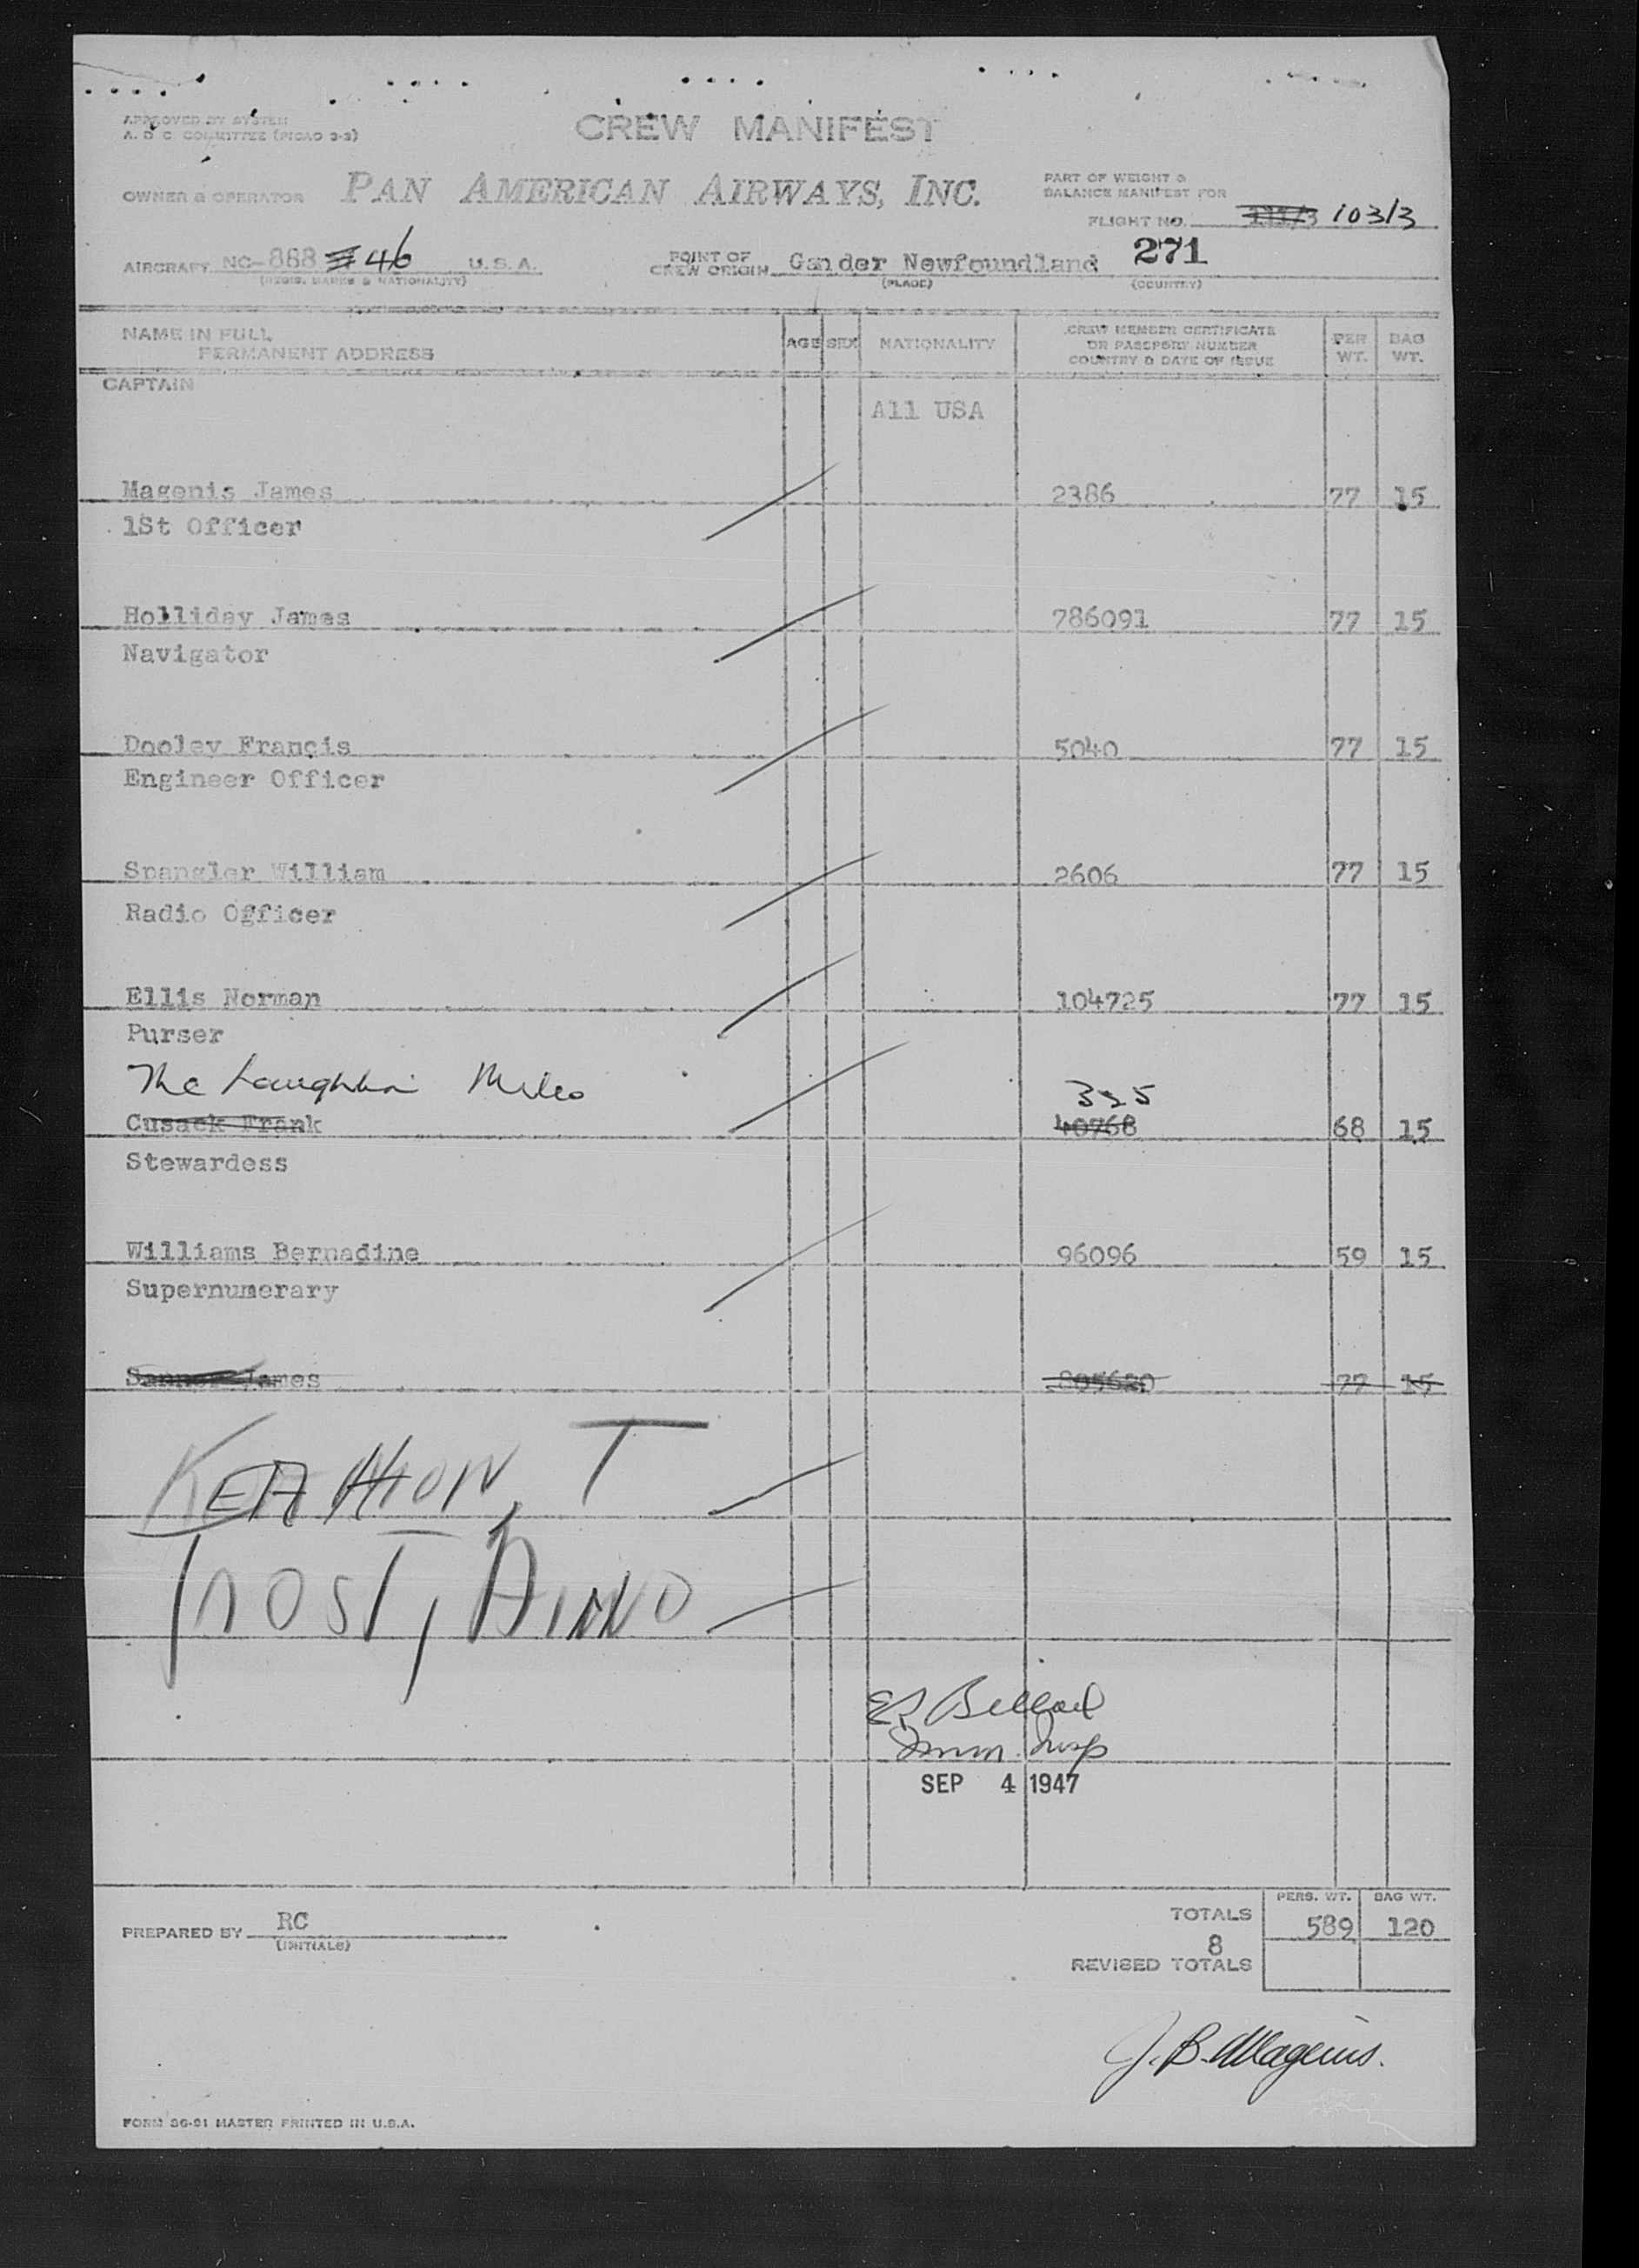 APPROVED BY SYSTEM
A. D C COMMITTEE (PICAO 3-3)
CREW MANIFEST
OWNER & OPERATOR PAN AMERICAN AIRWAYS, INC.
PART OF WEIGHT &
BALANCE MANIFEST FOR
FLIGHT NO. 103/3
AIRCRAFT NC-868 46 U.S.A.
(REGIS. MARKS & NATIONALITY)
POINT OF
CREW ORIGIN Gander Newfoundland 271
(PLACE) (COUNTRY)
NAME IN FULL
PERMANENT ADDRESS
AGE SEX NATIONALITY
CREW MEMBER CERTIFICATE
OR PASSPORT NUMBER
COUNTRY & DATE OF ISSUE
PER WT.
BAG WT.
CAPTAIN
All USA
Magenis James 2386 77 15
1St Officer
Holliday James 786091 77 15
Navigator
Dooley Francis 5040 77 15
Engineer Officer
Spangler William 2606 77 15
Radio Officer
Ellis Norman 104725 77 15
Purser
Mc Laughlin Miles 325
Cusack Frank 40768 68 15
Stewardess
Williams Bernadine 96096 59 15
Supernumerary
James 805620 77 15
T
SEP 4 1947
PREPARED BY RC
(INITIALS)
PERS. WT. BAG WT.
TOTALS 589 120
8
REVISED TOTALS
J. B. Magenis.
FORM SG-91 MASTER PRINTED IN U.S.A.